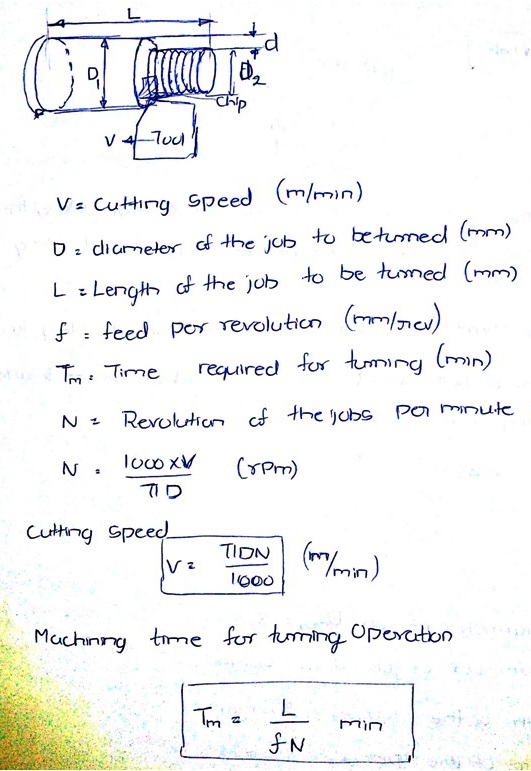 L
d
D₁
D₂
chip
V
Tool
V = Cutting speed (m/min)
D = diameter of the job to be turned (mm)
L = Length of the job to be turned (mm)
f = feed per revolution (mm/rev)
Tm = Time required for turning (min)
N = Revolution of the jobs per minute
N = 1000 x V / πD (rpm)
Cutting speed
V = πDN / 1000 (m/min)
Machining time for turning Operation
Tm = L / fN min